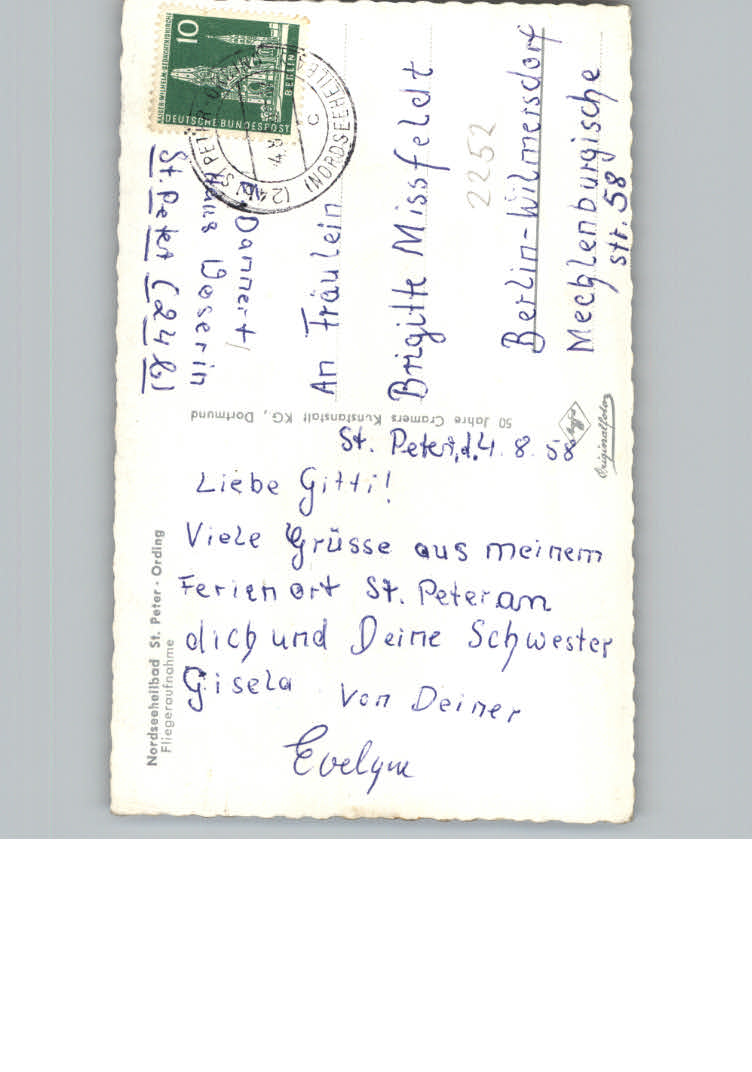 St. Peter, d. 4. 8. 58
Liebe Gitti!
Viele Grüsse aus meinem
Ferienort St. Peter an
dich und Deine Schwester
Gisela von Deiner
Evelyne
An Fräulein
Brigitte Missfeldt
Berlin-Wilmersdorf
Mechlenburgische
str. 58
2252
Dannert,
Haus Weserin
St. Peter (24 b)
Nordseeheilbad St. Peter - Ording
Fliegeraufnahme
50 Jahre Cramers Kunstanstalt KG, Dortmund
Agfa
Originalfoto
10
BERLIN
DEUTSCHE BUNDESPOST
KAISER-WILHELM-GEDÄCHTNISKIRCHE
(24b) ST PETER
(NORDSEEHEILBAD)
c